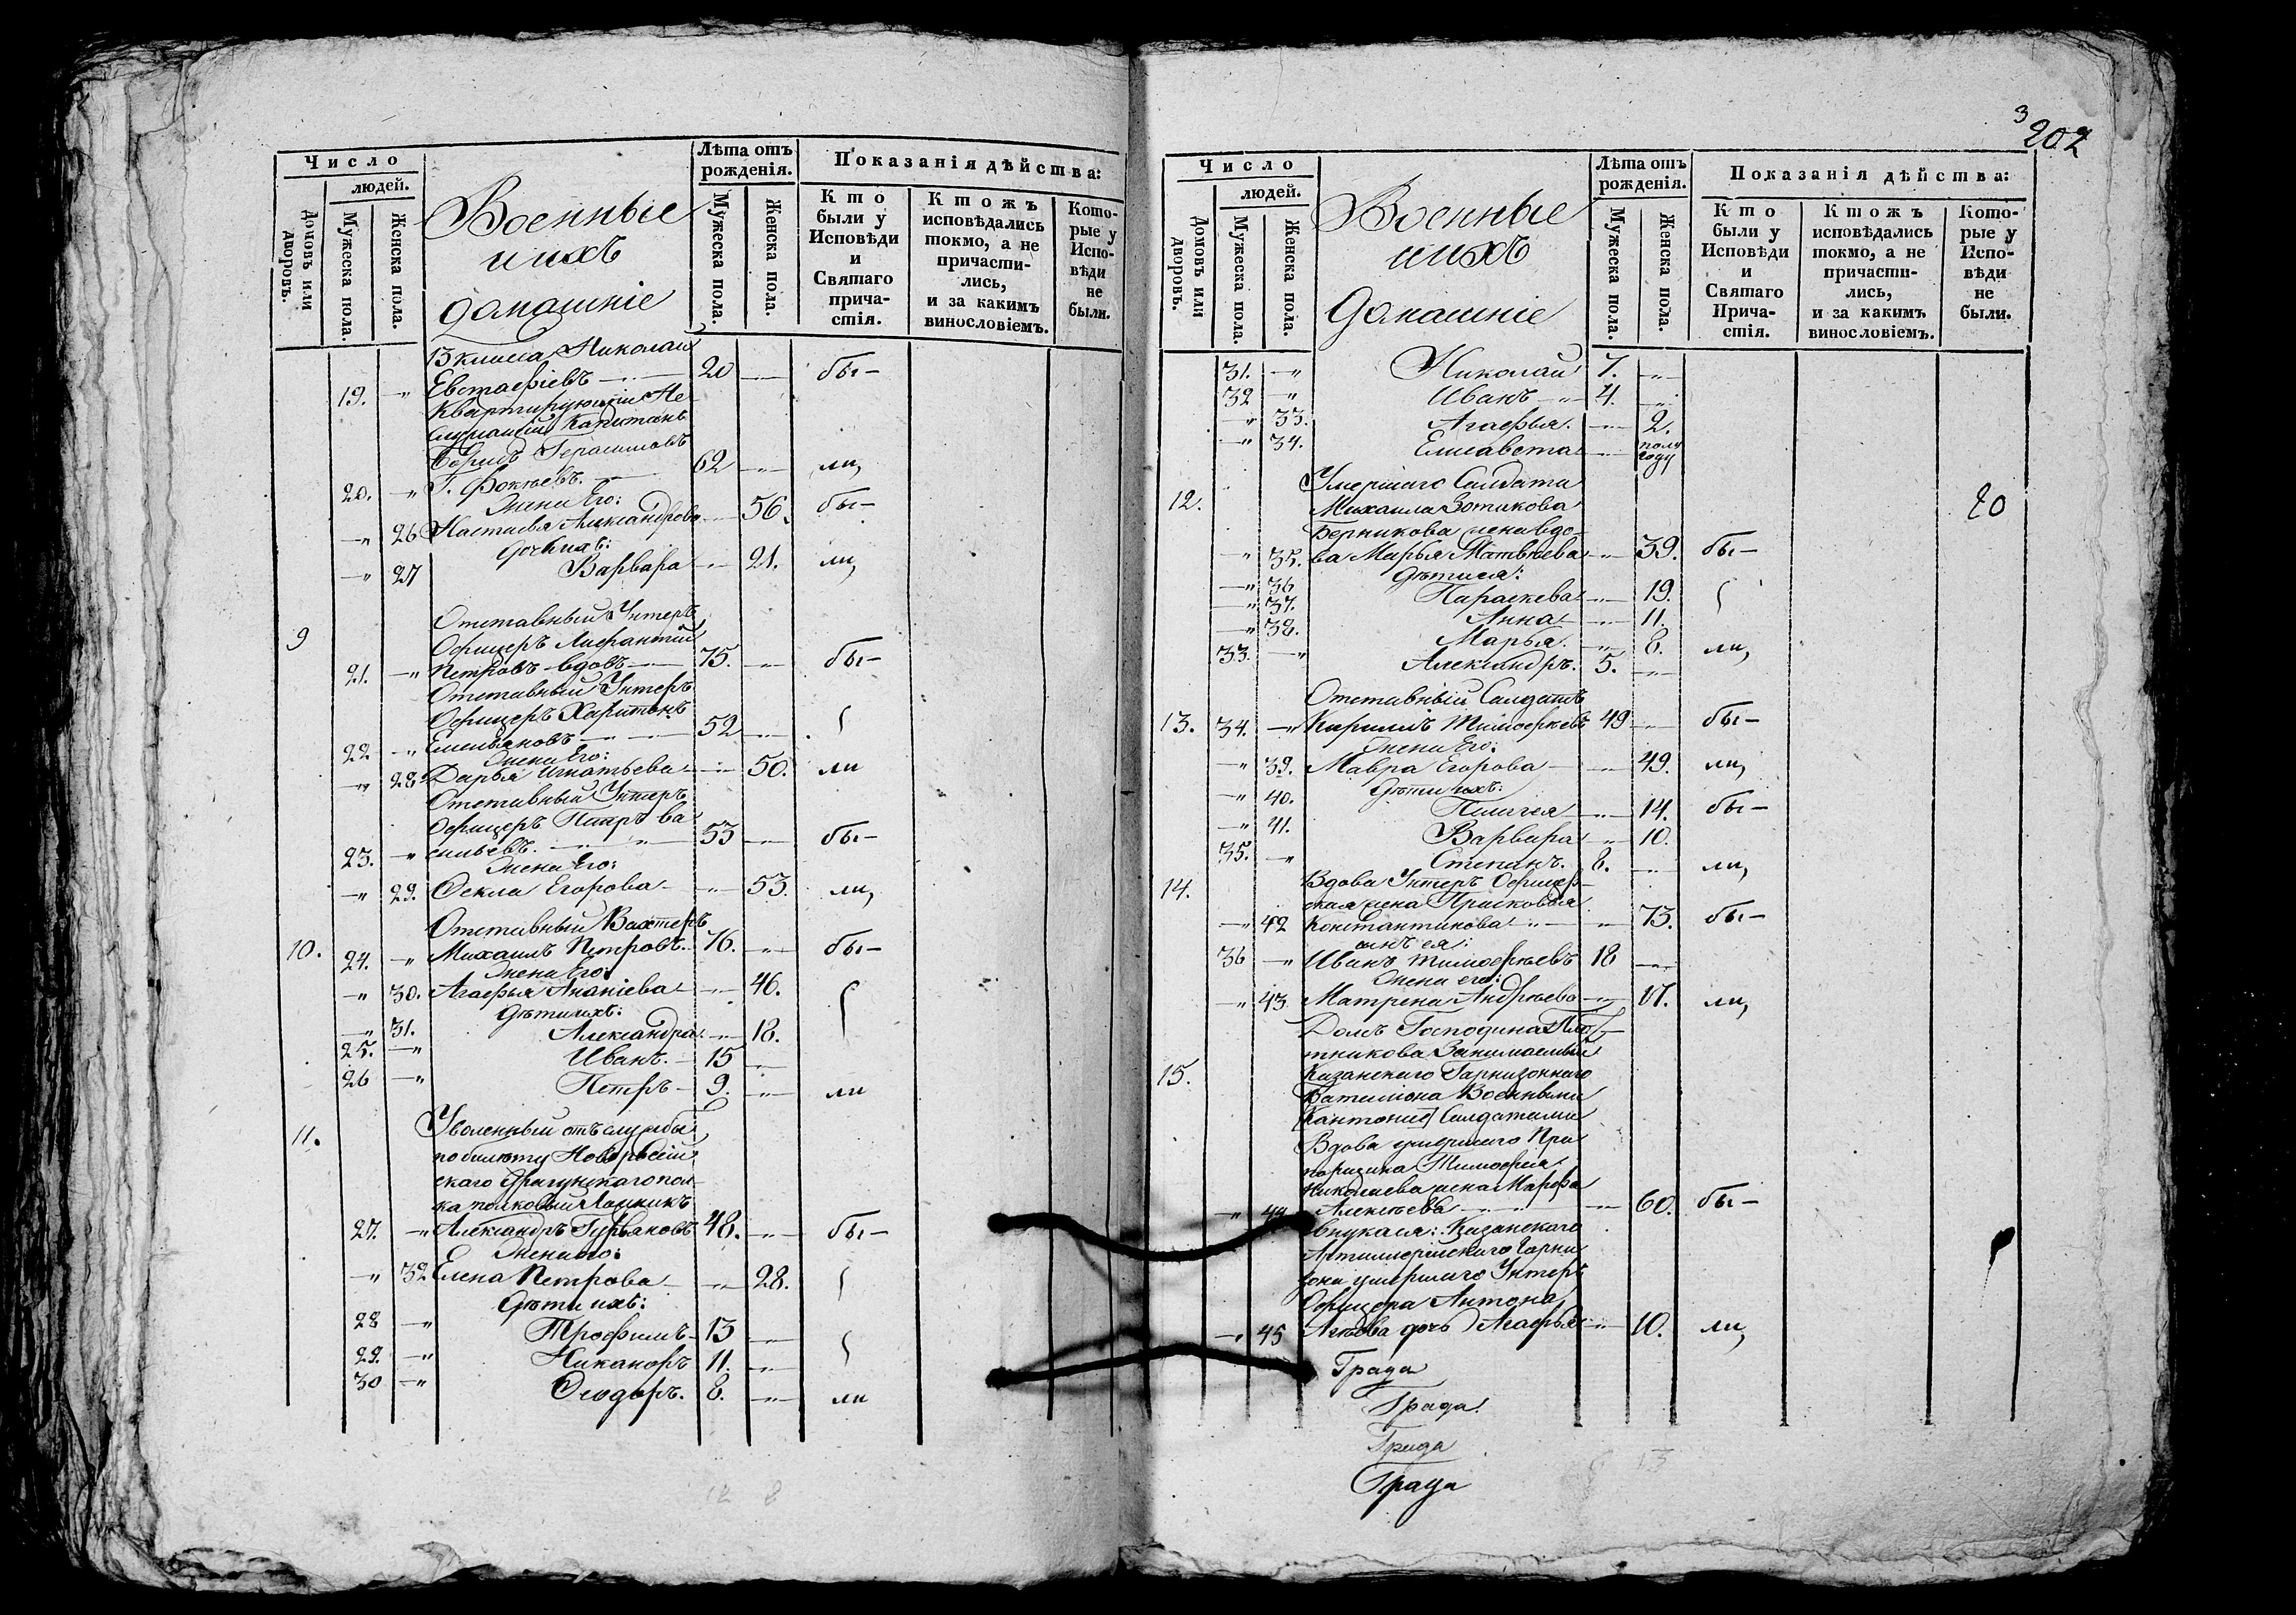 Число
людей.
Домовъ или дворовъ.
Мужеска пола.
Женска пола.
Военные
и ихъ
домашніе
Лѣта отъ рожденія.
Мужеска пола.
Женска пола.
Показанія дѣйства:
Кто были у Исповѣди и Святаго причастія.
Ктожъ исповѣдались токмо, а не причастились, и за какимъ винословіемъ.
Которые у Исповѣди не были.
13 класса Николай
19. —„ Евстафіевъ — 20 — бы—
Квартирующій
Капитанъ
Герасимовъ
20. —„ Г. Фокѣевъ. 62 — ли,
Жена Его:
—„ 26 Настасья Александрова — 56. бы—
Дочь ихъ:
—„ 27 Варвара — 21. ли,
9 Отставный Унтеръ
Офицеръ
21. —„ Петровъ вдовъ — 75. — бы—
Отставный Унтеръ
Офицеръ Харитонъ
22 —„ Емельяновъ — 52 —
Жена Его:
—„ 28. Дарья Игнатьева — 50. ли
Отставный Унтеръ
Офицеръ Петръ Ва
23. —„ сильевъ. 53 — бы—
Жена Его:
—„ 29. Фекла Егорова — 53. ли,
Отставный Вахтеръ
10. 24. —„ Михаилъ Петровъ. 76. — бы—
Жена Его:
—„ 30. Агафья Ананіева — 46.
Дѣти ихъ:
—„ 31. Александра — 18.
25. —„ Иванъ. 15 —
26 —„ Петръ 9. — ли
11. Уволенный отъ службы
по билету Новороссій
скаго Драгунскаго пол
ка полковый
27. —„ Александръ Гурьяновъ 48. — бы—
Жена его:
—„ 32 Елена Петрова — 28.
Дѣти ихъ:
28 —„ Трофимъ 13 —
29. —„ Никаноръ 11. —
30 —„ Ѳеодоръ. 8. — ли
3
202
Число
людей.
Домовъ или дворовъ.
Мужеска пола.
Женска пола.
Военные
и ихъ
домашніе
Лѣта отъ рожденія.
Мужеска пола.
Женска пола.
Показанія дѣйства:
Кто были у Исповѣди и Святаго Причастія.
Ктожъ исповѣдались токмо, а не причастились, и за какимъ винословіемъ.
Которые у Исповѣди не были.
31. —„ Николай 7. —
32 —„ Иванъ 4. —
—„ 33. Агафья. — 2.
—„ 34. Елисавета — полу году
12. Умершаго Салдата
Михаила Зотикова 20
Берникова жена вдо-
—„ 35. ва Марья Матвѣева — 39. бы—
Дѣти ея:
—„ 36 Параскева — 19.
—„ 37. Анна — 11.
—„ 38. Марья. — 8. ли,
33. —„ Александръ. 5. —
Отставный Салдатъ
13. 34. —„ Кирилъ Тимофеевъ 49 — бы—
Жена Его:
—„ 39. Мавра Егорова — 49. ли,
Дѣти ихъ:
—„ 40. Пелагея — 14. бы—
—„ 41. Варвара — 10.
35. —„ Степанъ. 8. — ли,
14. Вдова Унтеръ Офицер-
ская жена Прасковья
—„ 42 Константинова — 73. бы—
сынъ ея:
36 —„ Иванъ Тимофѣевъ 18 —
Жена его:
—„ 43. Матрена Андреева — 17. ли,
Домъ Господина Пло-
тникова Занимаемый
15. Казанскаго Гарнизоннаго
Баталіона Военными
Кантонис Салдатами
Вдова умершаго Пра
порщика Тимофея
Николаева жена Марфа
—„ 44 Алексѣева — 60. бы—
внука ея: Казанскаго
Артиллерійскаго Гарни
зона умершаго Унтеръ
Офицера Антона
—„ 45 дочь Агафья — 10. ли,
Града
Града
Града
Града